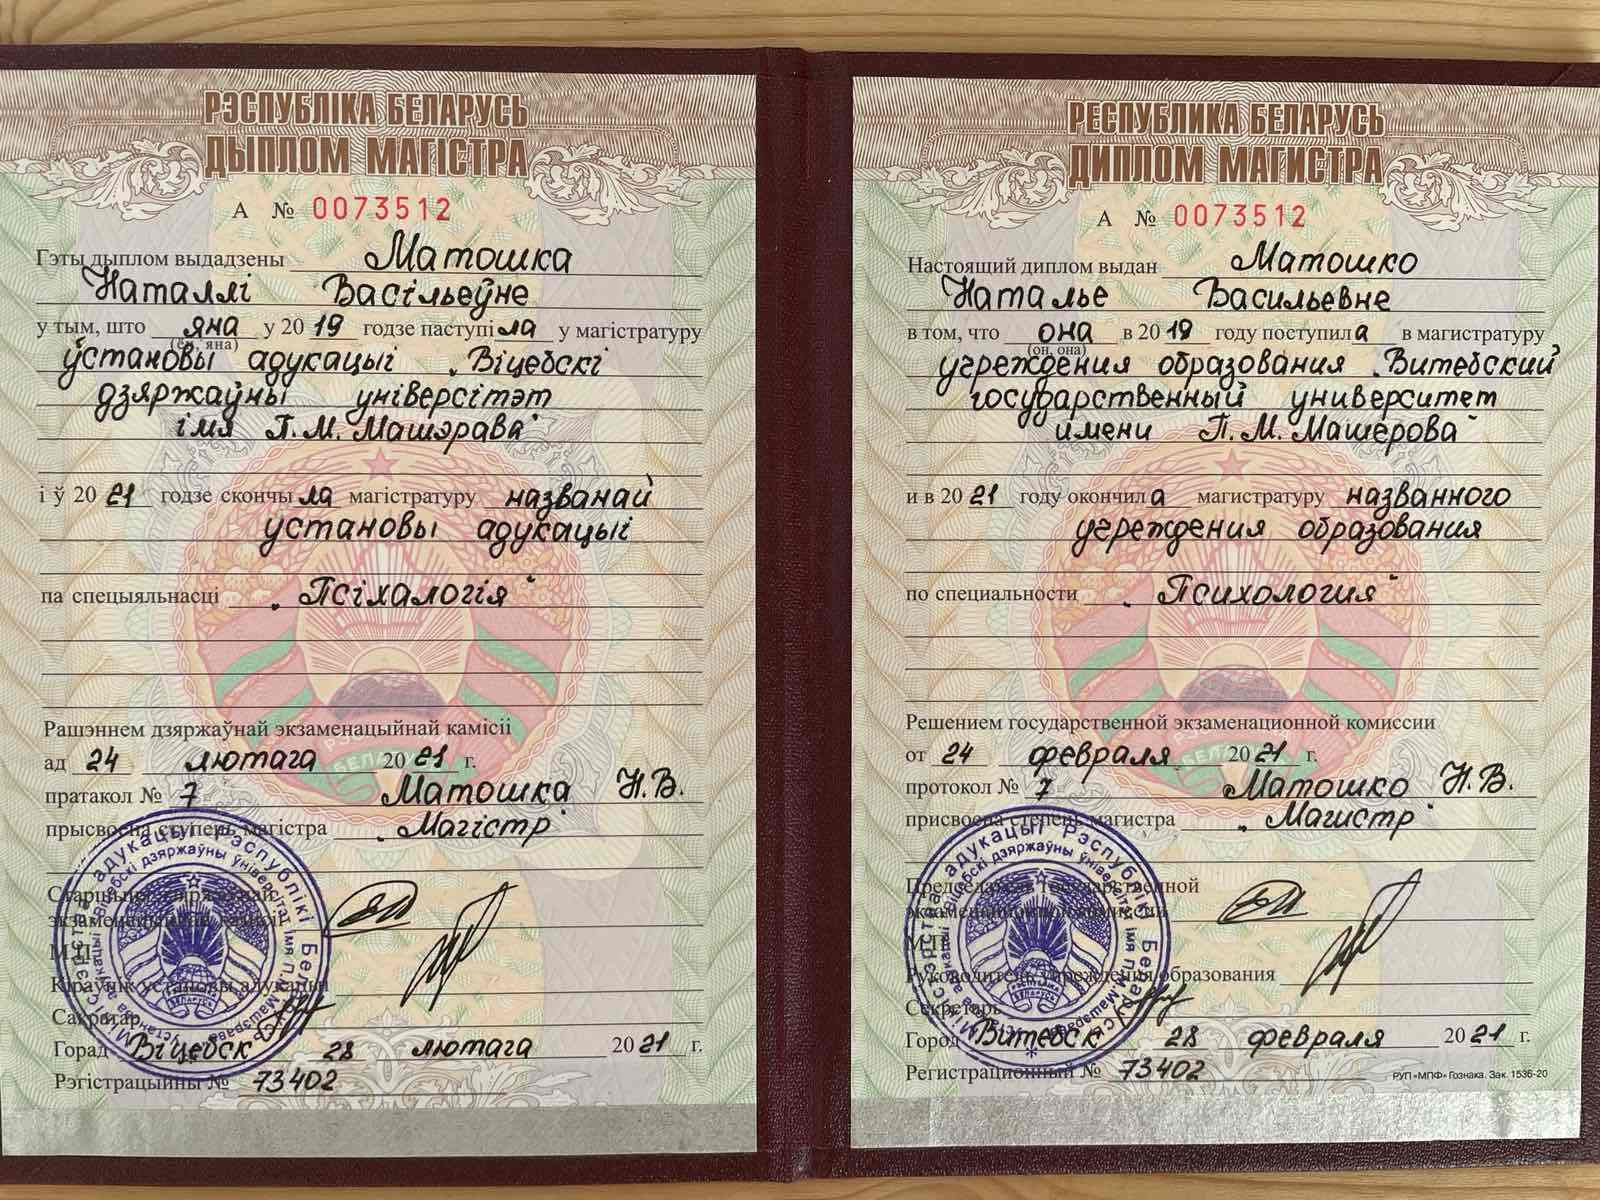 РЭСПУБЛІКА БЕЛАРУСЬ
ДЫПЛОМ МАГІСТРА
А № 0073512
Гэты дыплом выдадзены Матошка
Наталлі Васільеўне
у тым, што яна у 2019 годзе паступіла у магістратуру
(ён, яна)
ўстановы адукацыі „Віцебскі
дзяржаўны універсітэт
імя П.М. Машэрава“
і ў 2021 годзе скончыла магістратуру названай
установы адукацыі
па спецыяльнасці „Псіхалогія“
Рашэннем дзяржаўнай экзаменацыйнай камісіі
ад 24 лютага 2021 г.
пратакол № 7 Матошка Н.В.
прысвоена ступень магістра „Магістр“
Старшыня дзяржаўнай
экзаменацыйнай камісіі
М.П.
Кіраўнік установы адукацыі
Сакратар
Горад Віцебск 28 лютага 2021 г.
Рэгістрацыйны № 73402
РЕСПУБЛИКА БЕЛАРУСЬ
ДИПЛОМ МАГИСТРА
А № 0073512
Настоящий диплом выдан Матошко
Наталье Васильевне
в том, что она в 2019 году поступила в магистратуру
(он, она)
учреждения образования „Витебский
государственный университет
имени П.М. Машерова“
и в 2021 году окончила магистратуру названного
учреждения образования
по специальности „Психология“
Решением государственной экзаменационной комиссии
от 24 февраля 2021 г.
протокол № 7 Матошко Н.В.
присвоена степень магистра „Магистр“
Председатель государственной
экзаменационной комиссии
М.П.
Руководитель учреждения образования
Секретарь
Город Витебск 28 февраля 2021 г.
Регистрационный № 73402
РУП «МПФ» Гознака. Зак. 1536-20